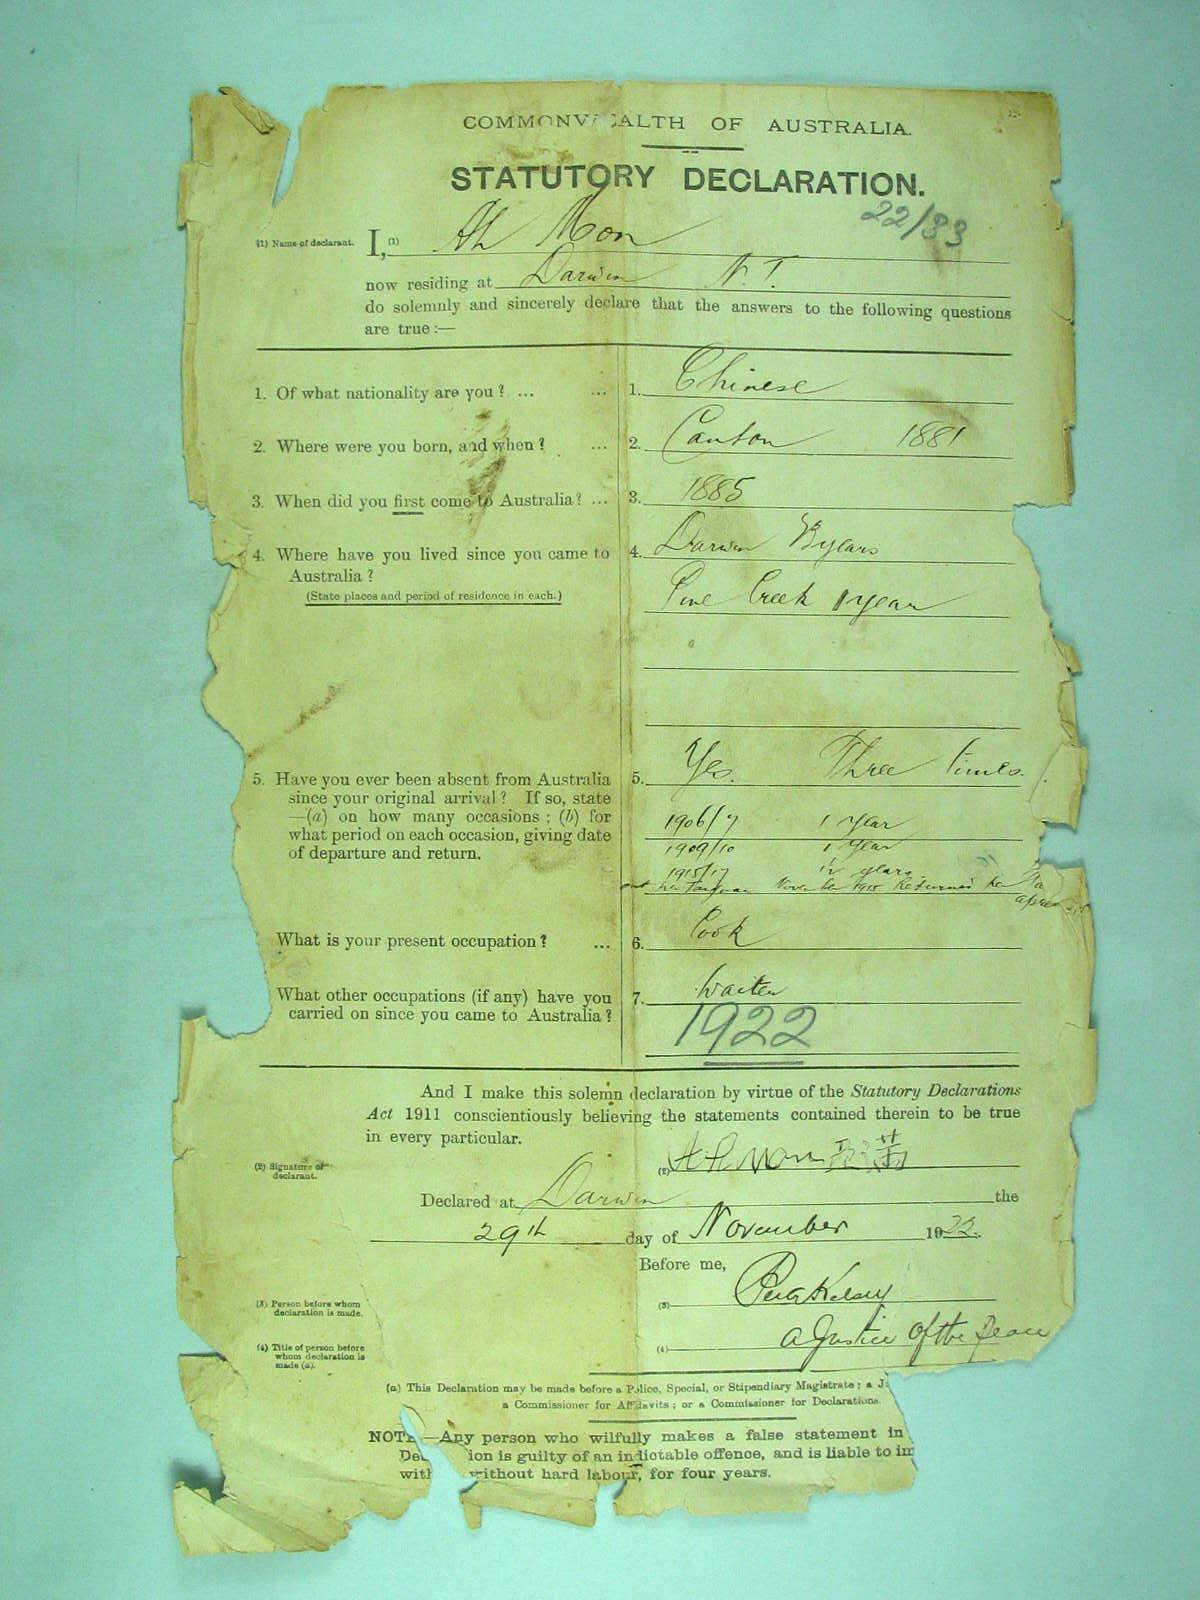 COMMONWEALTH OF AUSTRALIA.
STATUTORY DECLARATION.
22/33
(1) Name of declarant. I,(1) Ah Mon
now residing at Darwin N.T.
do solemnly and sincerely declare that the answers to the following questions
are true:—
1. Of what nationality are you? ... ... 1. Chinese
2. Where were you born, and when? ... 2. Canton 1881
3. When did you first come to Australia? ... 3. 1885
4. Where have you lived since you came to 4. Darwin years
Australia?
(State places and period of residence in each.) Pine Creek 1 year
5. Have you ever been absent from Australia 5. Yes. Three times.
since your original arrival? If so, state
—(a) on how many occasions; (b) for 1906/7 1 year
what period on each occasion, giving date 1909/10 1 year
of departure and return. 1915/17 1½ years
November 1915 Returned per
What is your present occupation? ... 6. Cook
What other occupations (if any) have you 7. Waiter
carried on since you came to Australia?
1922
And I make this solemn declaration by virtue of the Statutory Declarations
Act 1911 conscientiously believing the statements contained therein to be true
in every particular.
(2) Signature of
declarant. (2) Ah Mon
Declared at Darwin the
29th day of November 1922.
Before me,
(3) Person before whom
declaration is made. (3)
(4) Title of person before
whom declaration is
made (a). (4) a Justice of the Peace
(a) This Declaration may be made before a Police, Special, or Stipendiary Magistrate; a J
a Commissioner for Affidavits; or a Commissioner for Declarations.
NOTE.—Any person who wilfully makes a false statement in
De ion is guilty of an indictable offence, and is liable to im
with without hard labour, for four years.